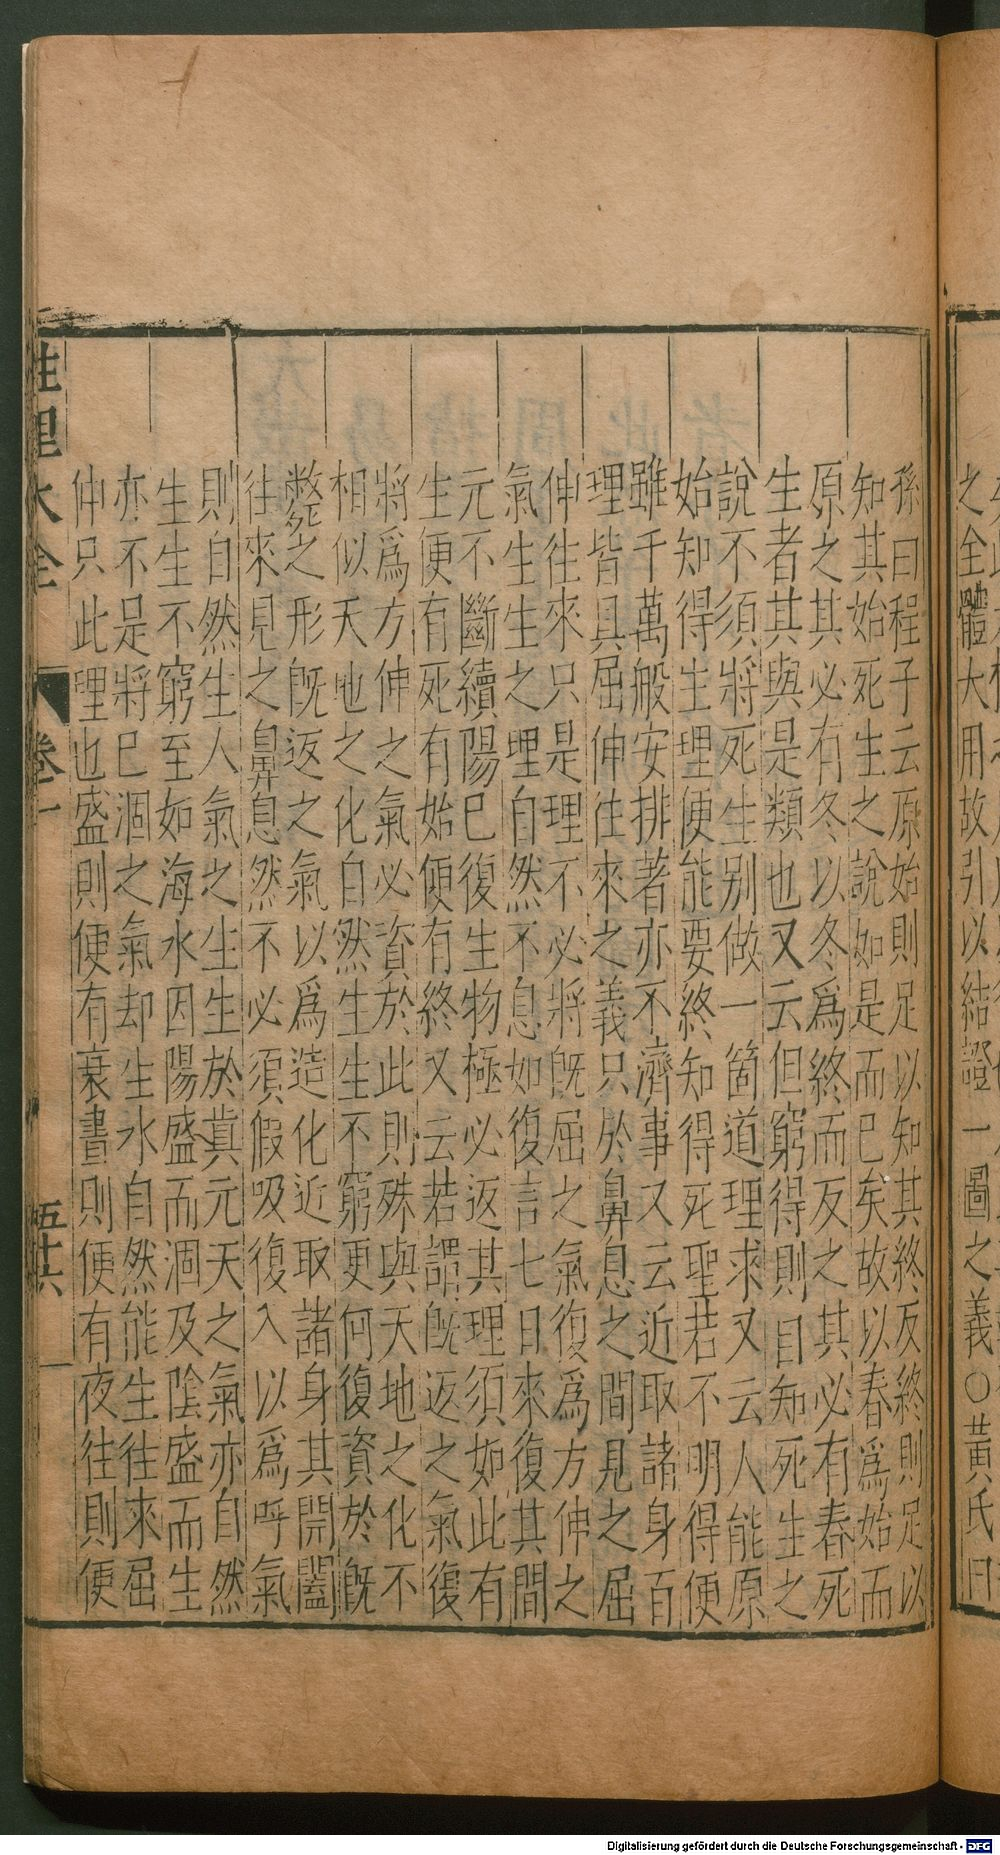 之全體大用故引以結證一圖之義○黃氏曰
孫曰程子云原始則足以知其終反終則足以
知其始死生之說如是而已矣故以春爲始而
原之其必有冬以冬爲終而反之其必有春死
生者其與是類也又云但窮得則自知死生之
說不須將死生别做一箇道理求又云人能原
始知得生理便能要終知得死理若不明得便
雖千萬般安排著亦不濟事又云近取諸身百
理皆具屈伸往來之義只於鼻息之間見之屈
伸往來只是理不必將旣屈之氣復爲方伸之
氣生生之理自然不息如復言七日來復其間
元不斷續陽已復生物極必返其理須如此有
生便有死有始便有終又云若謂旣返之氣復
將爲方伸之氣必資於此則殊與天地之化不
相似天地之化自然生生不窮更何復資於旣
斃之形旣返之氣以爲造化近取諸身其開闔
往來見之鼻息然不必須假吸復入以爲呼氣
則自然生人氣之生生於眞元天之氣亦自然
生生不窮至如海水因陽盛而涸及陰盛而生
亦不是將已涸之氣却生水自然能生往來屈
伸只此理也盛則便有衰晝則便有夜往則便
性理大全 卷一 五十六
Digitalisierung gefördert durch die Deutsche Forschungsgemeinschaft - DFG